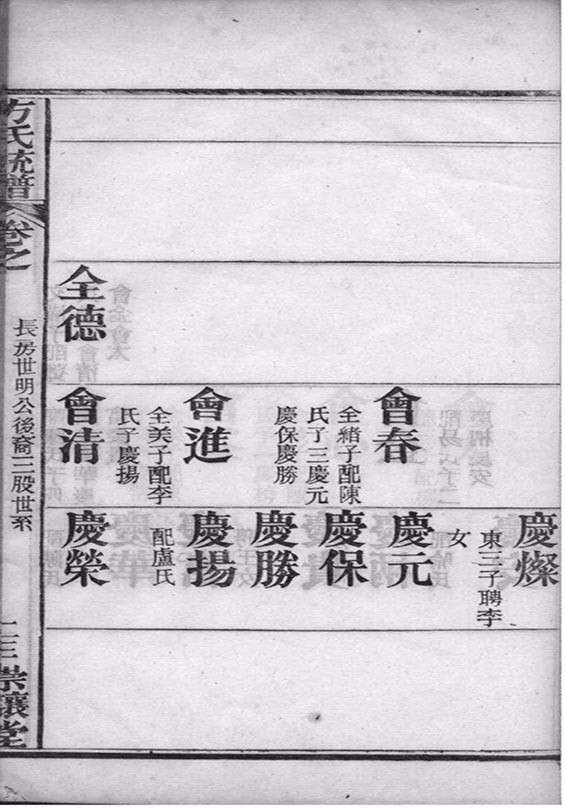 慶燦
東三子聘李
女
會春
全緒子配陳
氏子三慶元
慶保慶勝
慶元
慶保
慶勝
會進
全美子配李
氏子慶揚
慶揚
配盧氏
全德
會清
慶榮
方氏統譜
卷之
長房世明公後裔三股世系
崇讓堂